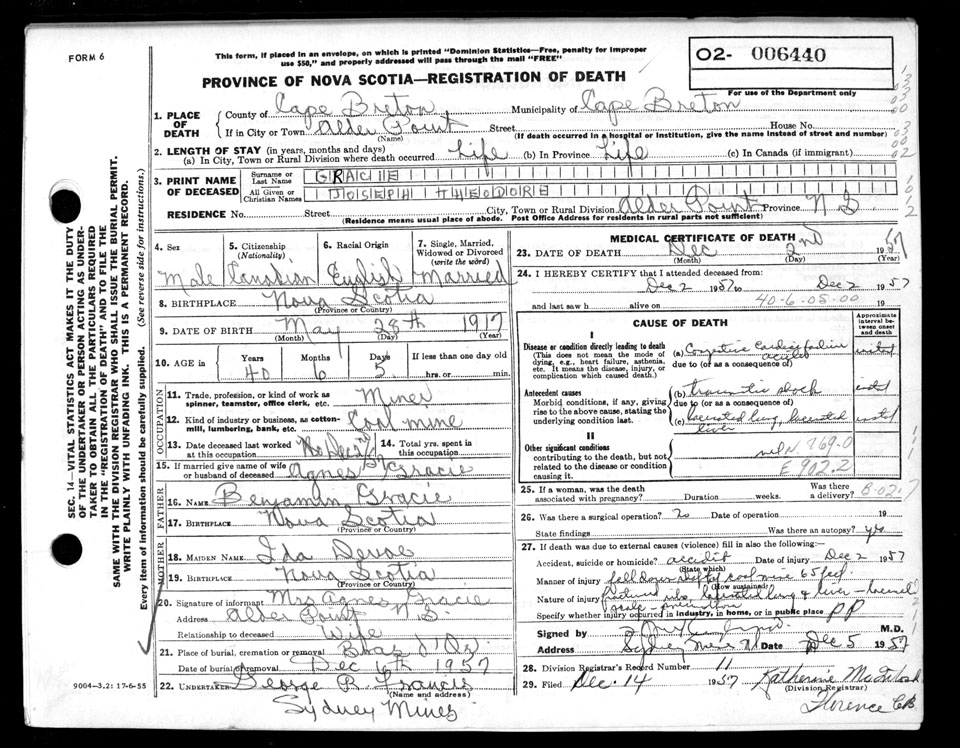 FORM 6
This form, if placed in an envelope, on which is printed "Dominion Statistics—Free, penalty for improper
use $50," and properly addressed will pass through the mail "FREE"
O2- 006440
PROVINCE OF NOVA SCOTIA—REGISTRATION OF DEATH
For use of the Department only
1. PLACE OF DEATH
County of Cape Breton Municipality of Cape Breton
If in City or Town Alder Point Street House No.
(Name) (If death occurred in a hospital or institution, give the name instead of street and number)
2. LENGTH OF STAY (in years, months and days)
(a) In City, Town or Rural Division where death occurred Life (b) In Province Life (c) In Canada (if immigrant)
3. PRINT NAME OF DECEASED
Surname or Last Name GRACIE
All Given or Christian Names JOSEPH THEODORE
RESIDENCE No. Street City, Town or Rural Division Alder Point Province N S
(Residence means usual place of abode. Post Office Address for residents in rural parts not sufficient)
4. Sex 5. Citizenship (Nationality) 6. Racial Origin 7. Single, Married, Widowed or Divorced (write the word)
Male Canadian English Married
8. BIRTHPLACE Nova Scotia
(Province or Country)
9. DATE OF BIRTH May 28th 1917
(Month) (Day) (Year)
10. AGE in Years Months Days If less than one day old
40 6 5 hrs. or min.
OCCUPATION
11. Trade, profession, or kind of work as spinner, teamster, office clerk, etc. Miner
12. Kind of industry or business, as cotton-mill, lumbering, bank, etc. Coal mine
13. Date deceased last worked at this occupation Dec 2nd 57 14. Total yrs. spent in this occupation
15. If married give name of wife or husband of deceased Agnes Gracie
FATHER
16. NAME Benjamin Gracie
17. BIRTHPLACE Nova Scotia
(Province or Country)
MOTHER
18. MAIDEN NAME Ida
19. BIRTHPLACE Nova Scotia
(Province or Country)
20. Signature of informant Mrs Agnes Gracie
Address Alder Point N S
Relationship to deceased Wife
21. Place of burial, cremation or removal Bras d'Or
Date of burial or removal Dec 6th 1957
22. UNDERTAKER George R. Francis
(Name and address)
Sydney Mines
9004-3.2: 17-6-55
SEC. 14—VITAL STATISTICS ACT MAKES IT THE DUTY
OF THE UNDERTAKER OR PERSON ACTING AS UNDER-
TAKER TO OBTAIN ALL THE PARTICULARS REQUIRED
IN THE "REGISTRATION OF DEATH" AND TO FILE THE
SAME WITH THE DIVISION REGISTRAR WHO SHALL ISSUE THE BURIAL PERMIT.
WRITE PLAINLY WITH UNFADING INK. THIS IS A PERMANENT RECORD.
Every item of information should be carefully supplied. (See reverse side for instructions.)
MEDICAL CERTIFICATE OF DEATH
23. DATE OF DEATH Dec 2nd 1957
(Month) (Day) (Year)
24. I HEREBY CERTIFY that I attended deceased from:
Dec 2 1957 to Dec 2 1957
and last saw h alive on 40-6-05-00 19
CAUSE OF DEATH
Approximate interval between onset and death
I
Disease or condition directly leading to death
(This does not mean the mode of dying, e.g., heart failure, asthenia, etc. It means the disease, injury, or complication which caused death.)
(a) Congestive Cardiac failure acute
due to (or as a consequence of)
Antecedent causes
Morbid conditions, if any, giving rise to the above cause, stating the underlying condition last.
(b) traumatic shock
due to (or as a consequence of)
(c) lacerated lung, lacerated liver
II
Other significant conditions
contributing to the death, but not related to the disease or condition causing it.
N 869.0
E 912.2
25. If a woman, was the death associated with pregnancy? Duration weeks. Was there a delivery? 8-02.7
26. Was there a surgical operation? no Date of operation 19
State findings Was there an autopsy? yes
27. If death was due to external causes (violence) fill in also the following:
Accident, suicide or homicide? accident Date of injury Dec 2 1957
(State which)
Manner of injury fell down coal mine 65 feet
(How sustained)
Nature of injury fractured ribs lacerated lung & liver
Specify whether injury occurred in industry, in home, or in public place pp
Signed by M.D.
Address Sydney Mines Dec 5 1957
28. Division Registrar's Record Number 11
29. Filed Dec. 14 1957 Katherine
(Division Registrar)
Florence CB